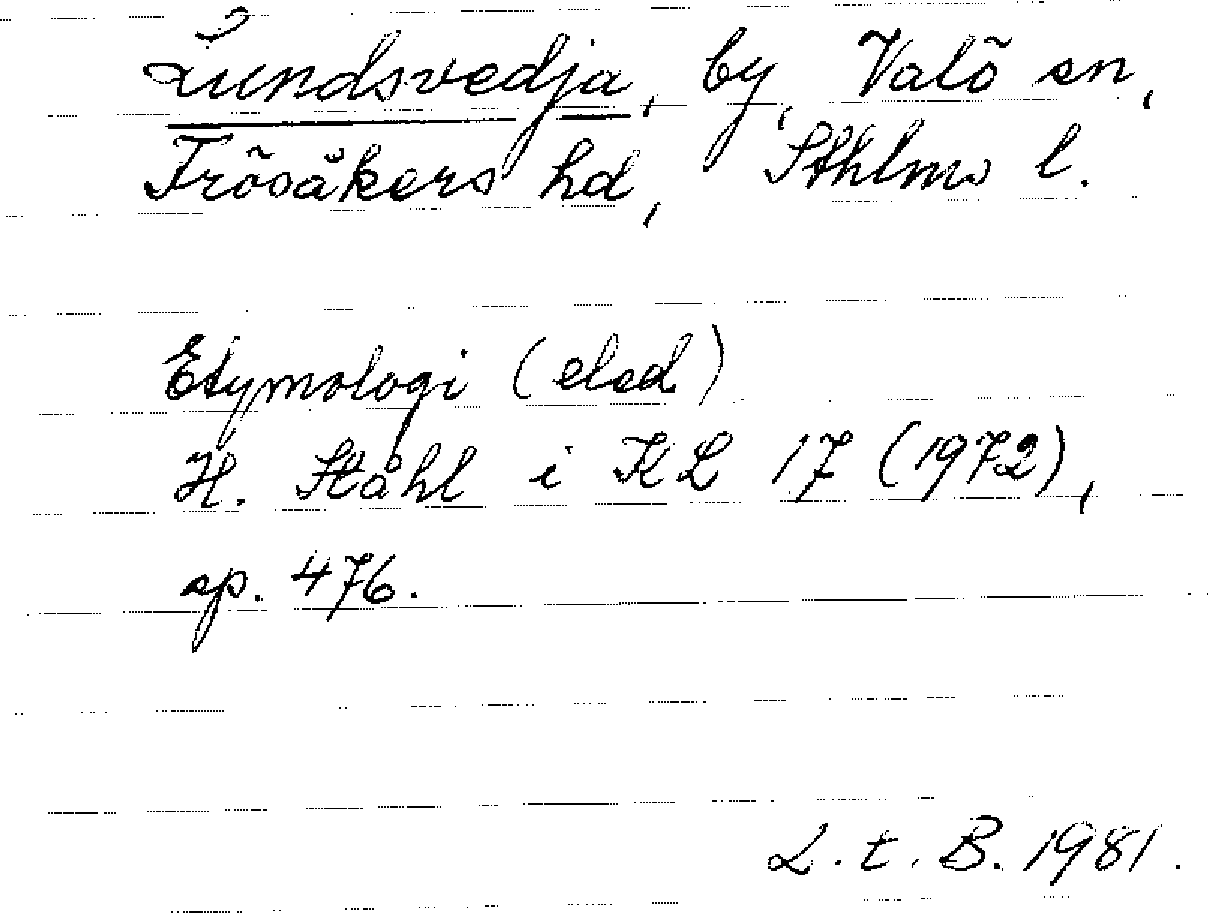 Lundsvedja, by, Valö sn,
Frösåkers hd, Sthlms l.
Etymologi (elsd)
H. Ståhl i KL 17 (1972),
sp. 476.
L. t. B. 1981.